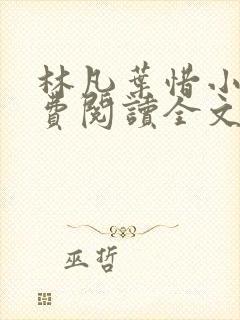 林凡葉惜小
費閱讀全文
巫哲